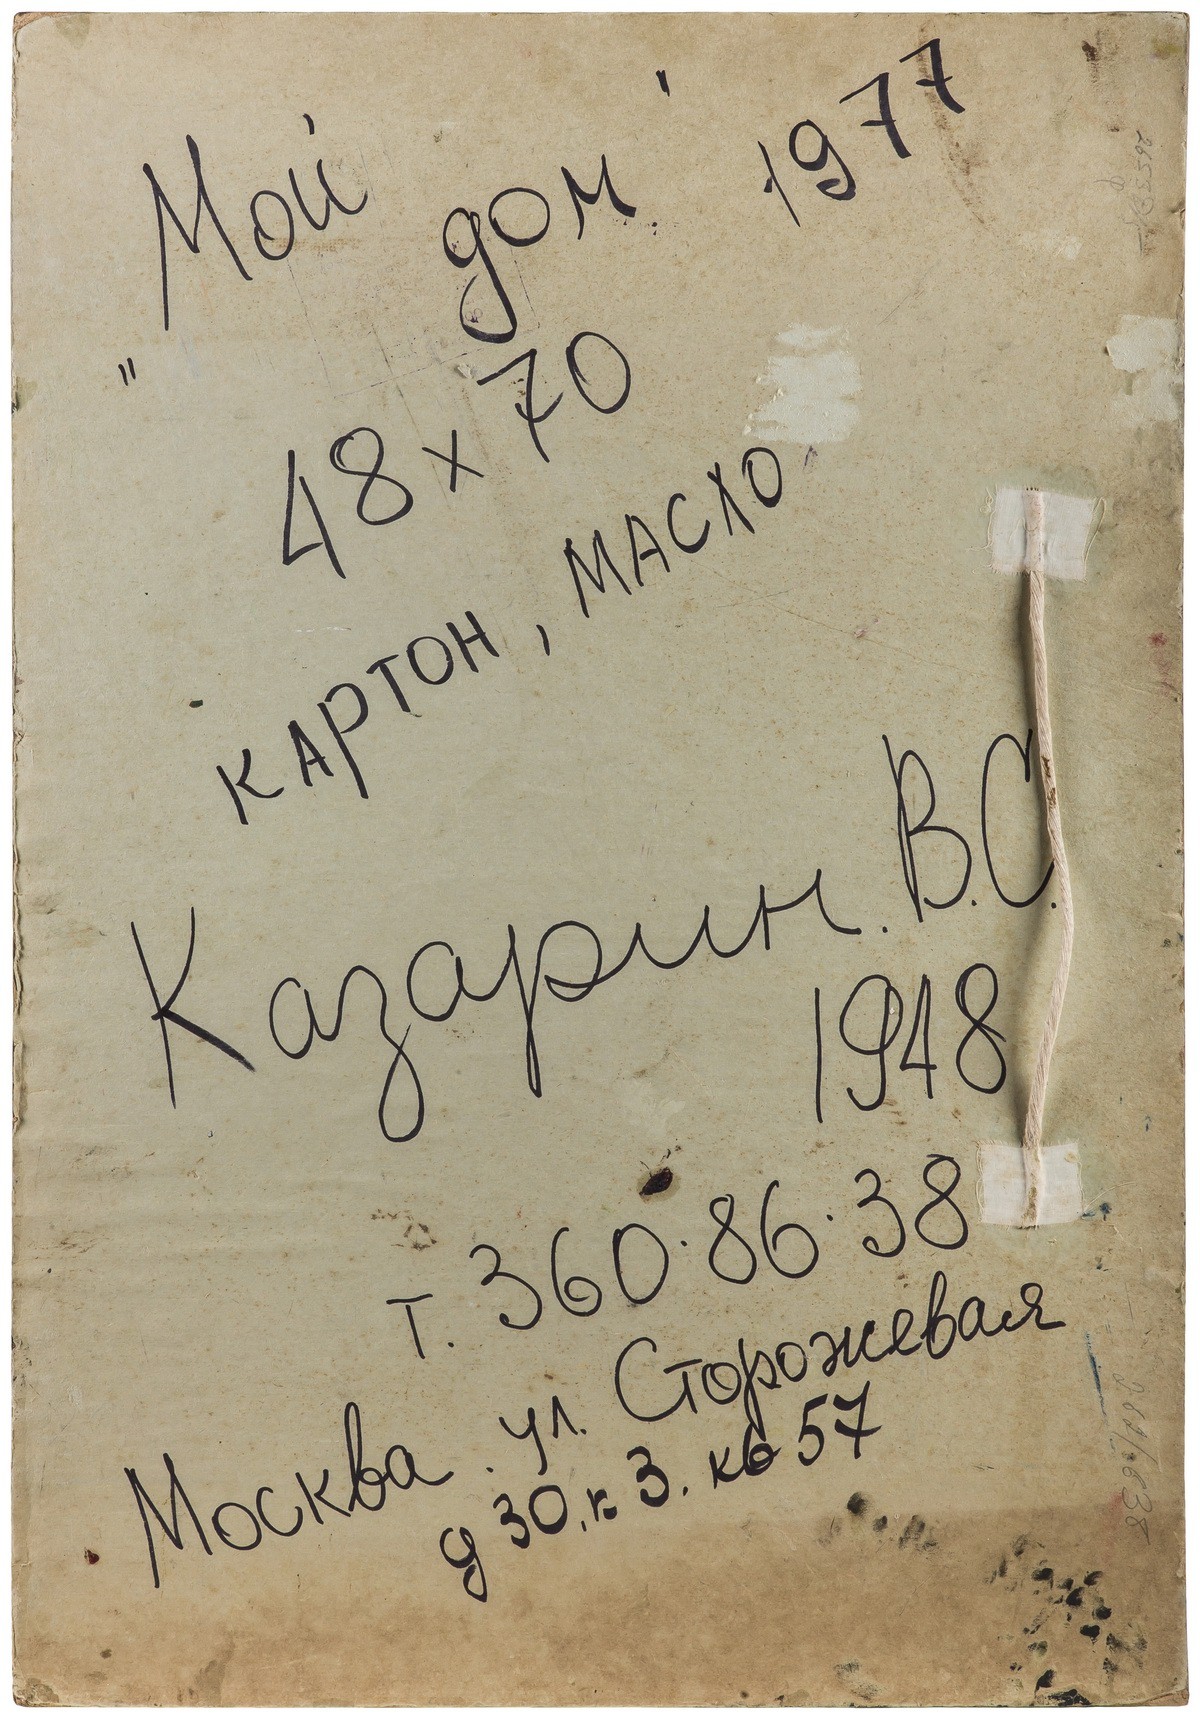 "Мой дом" 1977
48 х 70
КАРТОН, МАСЛО
Казарин. В.С.
1948
т. 360·86·38
Москва. ул. Сторожевая
д 30, к 3. кв 57